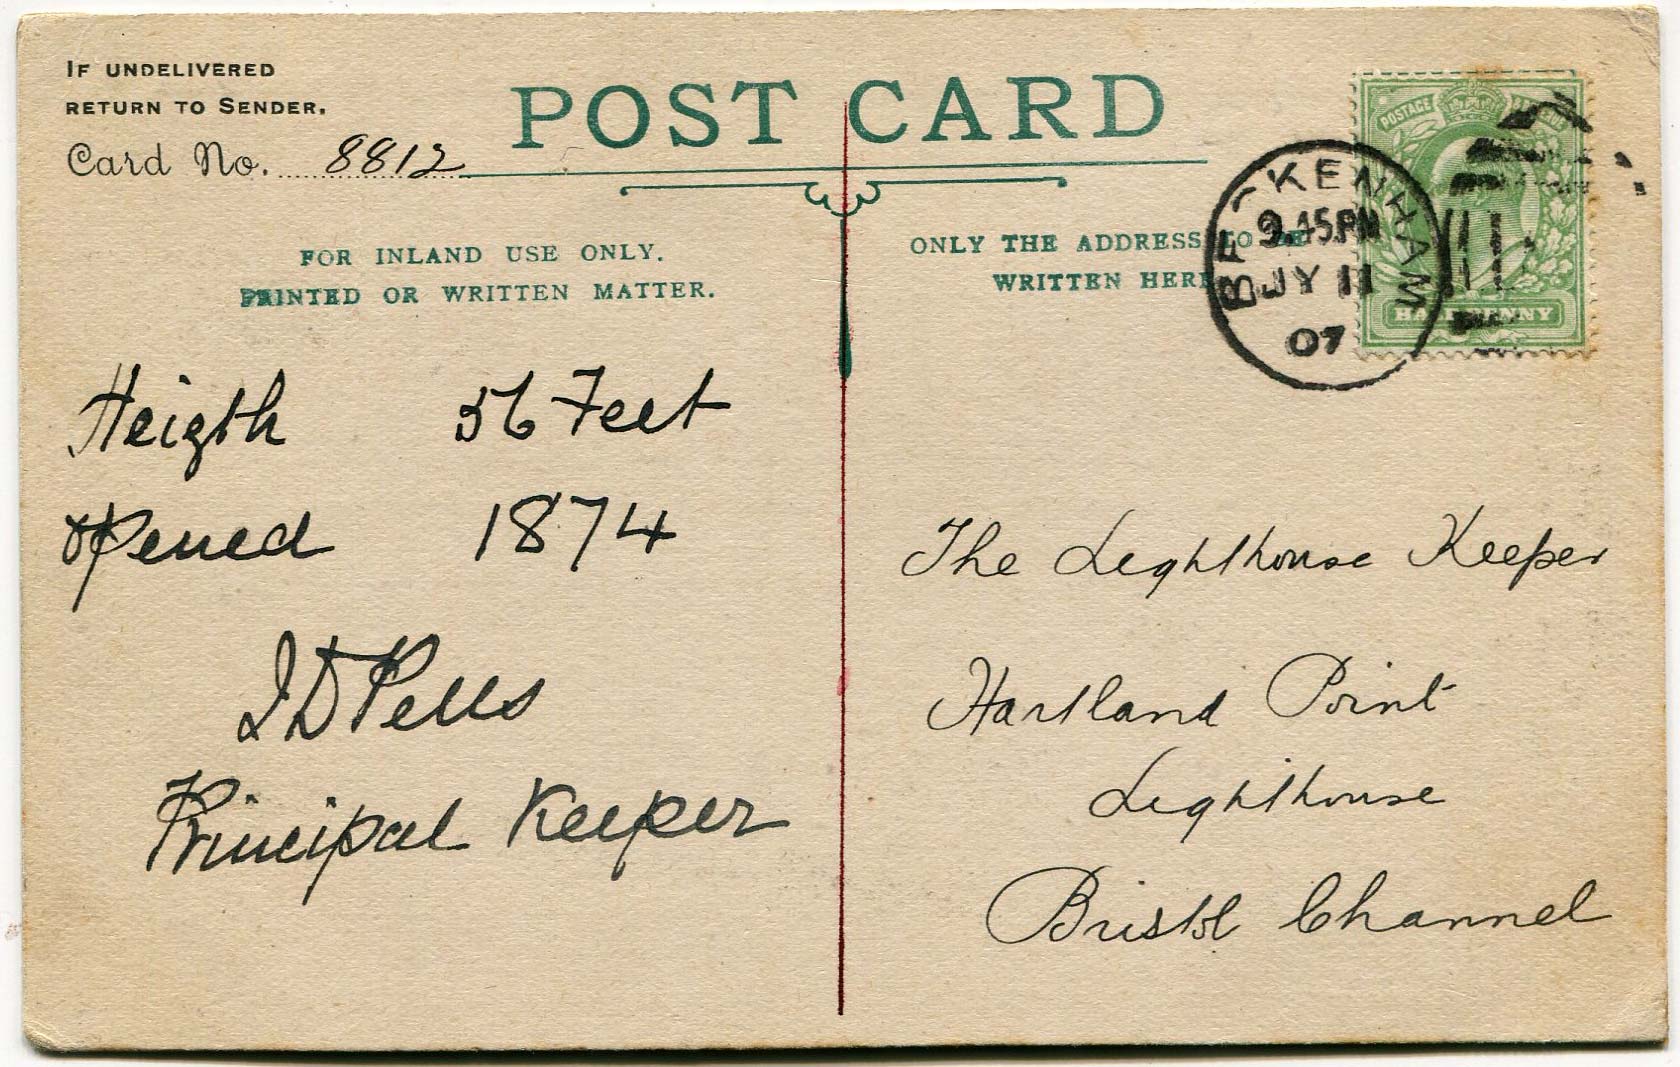 IF UNDELIVERED
RETURN TO SENDER.
Card No. 8812
POST CARD
FOR INLAND USE ONLY.
PRINTED OR WRITTEN MATTER.
ONLY THE ADDRESS TO BE
WRITTEN HERE
BECKENHAM
9.45PM
JY 11
07
POSTAGE
HALFPENNY
Heigth 56 Feet
opened 1874
J D Pells
Principal Keeper
The Lighthouse Keeper
Hartland Point
Lighthouse
Bristol Channel